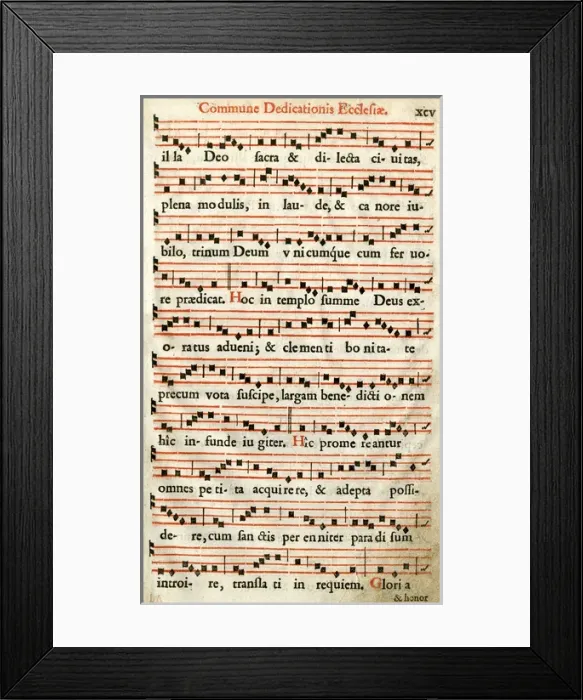 Commune Dedicationis Ecclesiæ. xcv
il la Deo sacra & di- lecta ci- uitas,
plena modulis, in lau- de, & ca nore iu-
bilo, trinum Deum v nicumque cum fer uo-
re prædicat. Hoc in templo summe Deus ex-
o- ratus adueni; & clementi bo nita- te
precum vota suscipe, largam bene- dicti o- nem
hîc in- funde iu giter. Hîc prome reantur
omnes pe ti- ta acqui re re, & adepta possi-
de- re, cum san ctis per enniter para di sum
introi- re, transla ti in requiem. Glori a
& honor